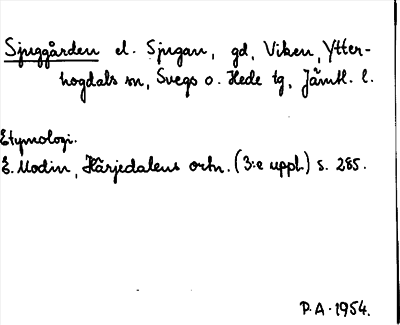 Sjuggården el. Sjugan, gd, Viken, Ytter-
hogdals sn, Svegs o. Hede tg, Jämtl. l.
Etymologi.
E. Modin, Härjedalens ortn. (3:e uppl.) s. 285.
P.A. 1954.